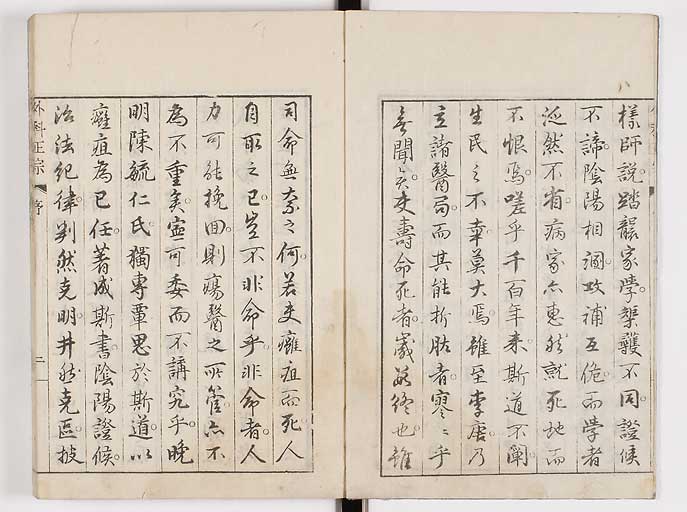 樣師說踏襲家學榘矱不同證候
不諦陰陽相溷攻補互佹而學者
涎然不省病家亦惠然就死地而
不恨焉嗟乎千百年來斯道不闡
生民之不幸莫大焉雖至李唐乃
立諸醫局而其能折肱者寥〻乎
無聞矣夫壽命死者歲改終也雖
司命無奈之何若夫癰疽而死人
自取之已豈不非命乎非命者人
力可能挽回則瘍醫之所管亦不
為不重矣寧可委而不講究乎晚
明陳毓仁氏獨專覃思於斯道以
癰疽為已任著成斯書陰陽證候
治法紀律判然克明井然克區披
外科正宗 序 二